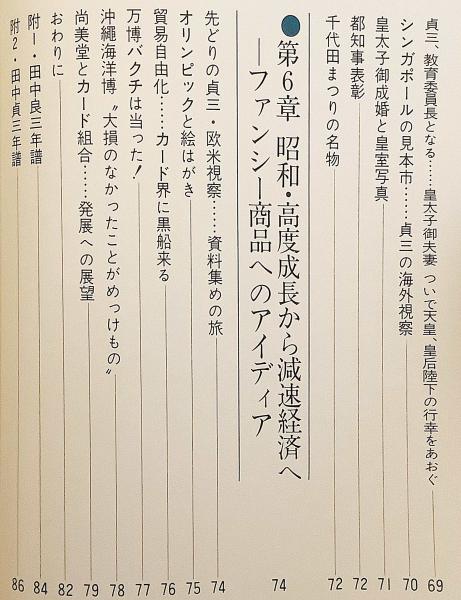 貞三、教育委員長となる……皇太子御夫妻 ついで天皇、皇后陛下の行幸をあおぐ 69
シンガポールの見本市……貞三の海外視察 70
皇太子御成婚と皇室写真 71
都知事表彰 72
千代田まつりの名物 72
●第6章 昭和・高度成長から減速経済へ
―ファンシー商品へのアイディア 74
先どりの貞三・欧米視察……資料集めの旅 74
オリンピックと絵はがき 75
貿易自由化……カード界に黒船来る 76
万博バクチは当った! 77
沖縄海洋博〝大損のなかったことがめっけもの〟 78
尚美堂とカード組合……発展への展望 79
おわりに 82
附1・田中良三年譜 84
附2・田中貞三年譜 86